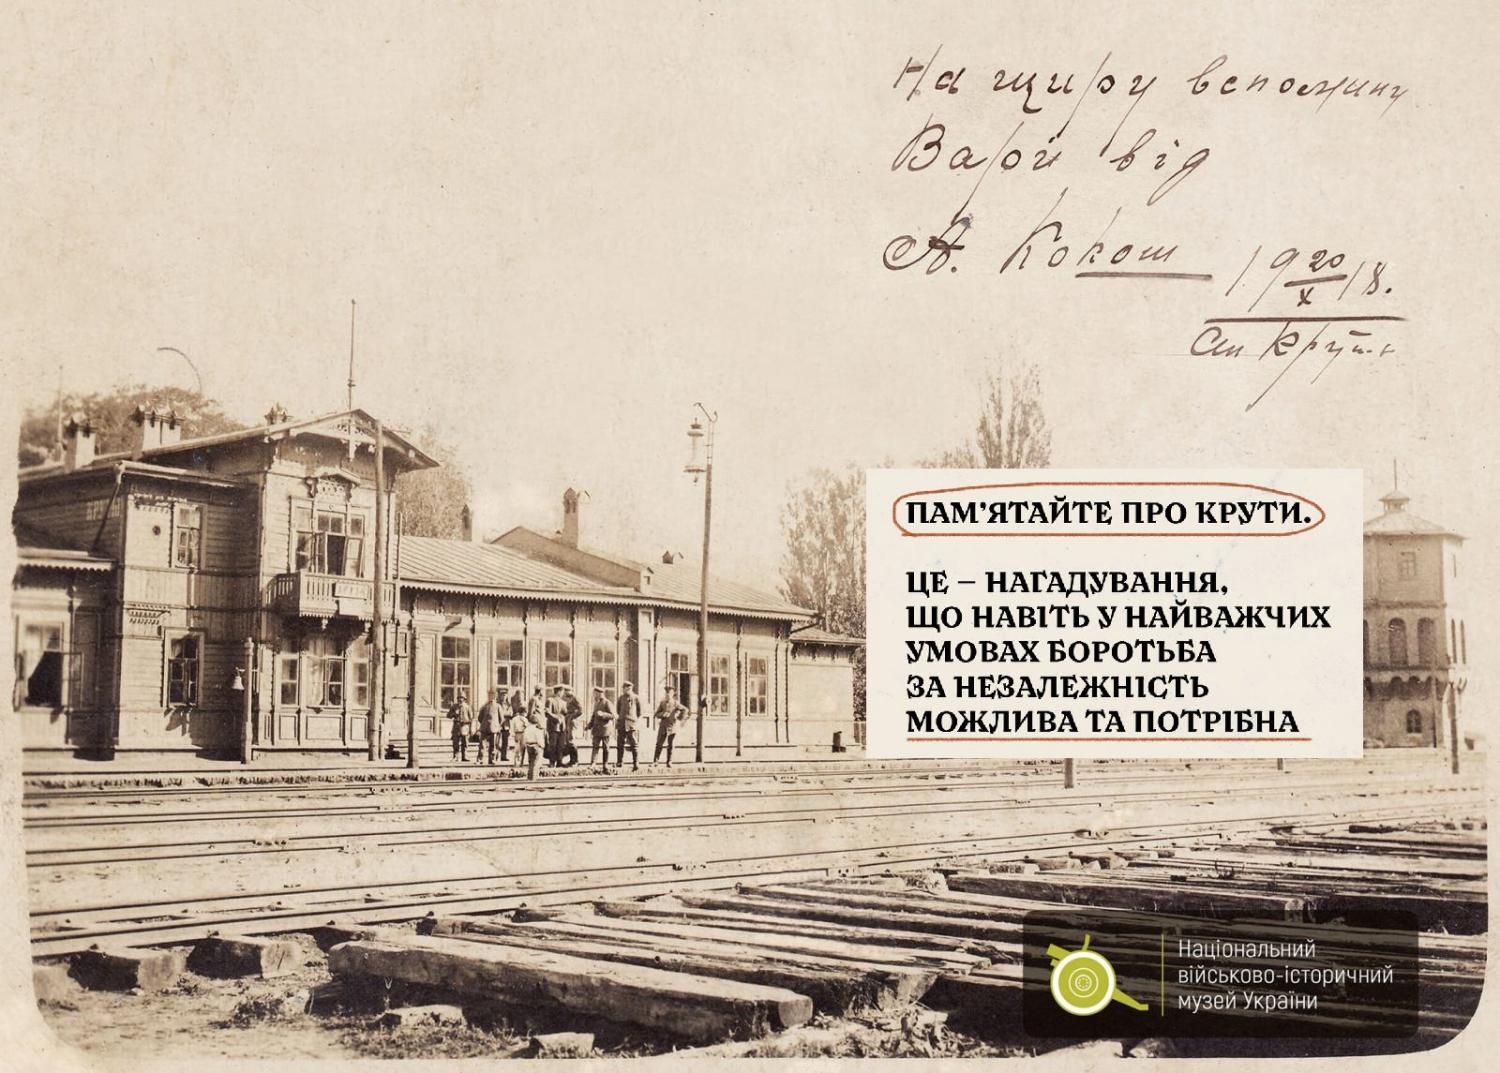 На щиру вспомину
Вари від
А. Кокош 19 20/X 18.
ст Крути
ПАМ'ЯТАЙТЕ ПРО КРУТИ.
ЦЕ – НАГАДУВАННЯ,
ЩО НАВІТЬ У НАЙВАЖЧИХ
УМОВАХ БОРОТЬБА
ЗА НЕЗАЛЕЖНІСТЬ
МОЖЛИВА ТА ПОТРІБНА
Національний
військово-історичний
музей України